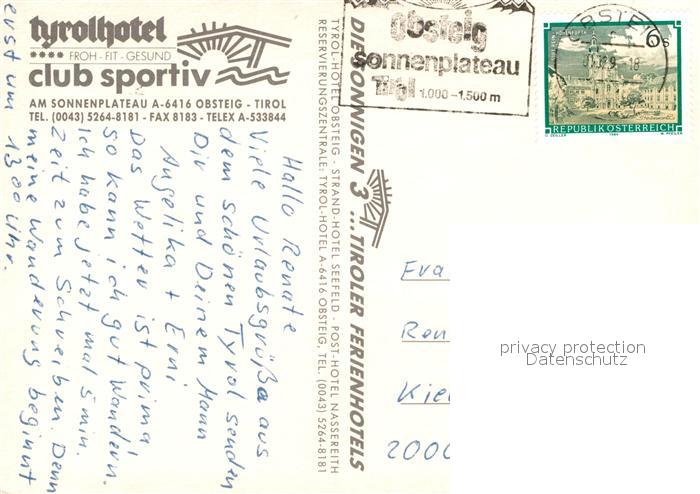 tyrolhotel
**** FROH - FIT - GESUND
club sportiv
AM SONNENPLATEAU A-6416 OBSTEIG - TIROL
TEL. (0043) 5264-8181 - FAX 8183 - TELEX A-533844
Hallo Renate
Viele Urlaubsgrüße aus
dem schönen Tyrol senden
Dir und Deinem Mann
Angelika + Erni
Das Wetter ist prima
so kann ich gut Wandern.
Ich habe jetzt mal 5 min.
Zeit zum Schreiben. Denn
meine Wanderung beginnt
erst um 13.00 Uhr.
TYROL-HOTEL OBSTEIG - STRAND-HOTEL SEEFELD - POST-HOTEL NASSEREITH
RESERVIERUNGSZENTRALE: TYROL-HOTEL A-6416 OBSTEIG, TEL. (0043) 5264-8181
DIE SONNIGEN 3 ... TIROLER FERIENHOTELS
obsteig
sonnenplateau
Tirol 1.000-1.500 m
OBSTEIG
6 S
REPUBLIK ÖSTERREICH
Eva
Ren
Kie
2000
privacy protection
Datenschutz